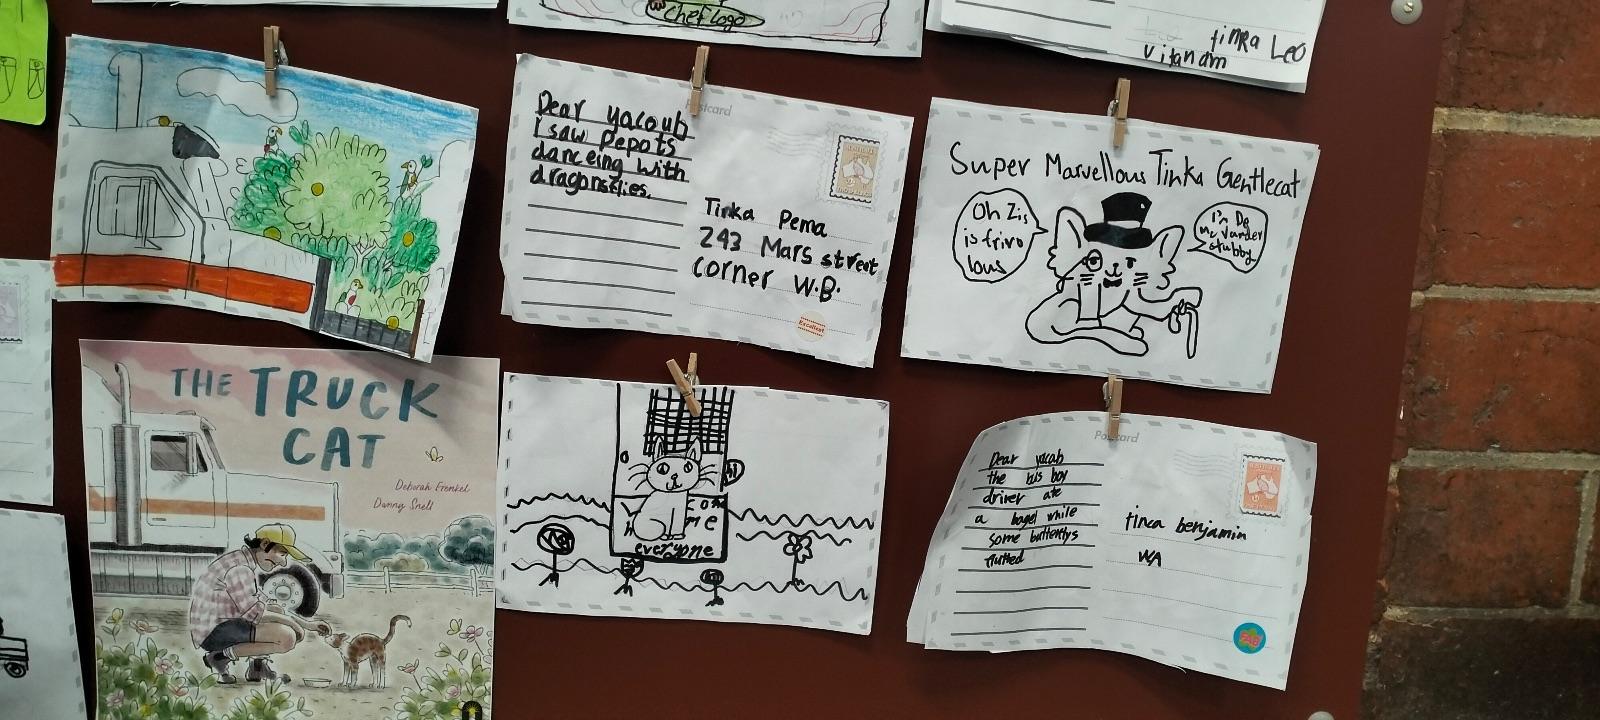 Chef Logo
tinka Leo
vitandm
Postcard
Dear yacoub
I saw Pepots
danceing with
dragonsflies.
Tinka Pema
243 Mars street
corner W.B.
Excellent
Super Marvellous Tinka Gentlecat
Oh Zis
is frivo
lous
I'm De
stubby
THE TRUCK
CAT
Deborah Frenkel
Danny Snell
hi
come
everyone
Postcard
Dear yacab
the bus boy
driver ate
a bagel while
some butterflys
flutted
tinca benjamin
WA
FAB